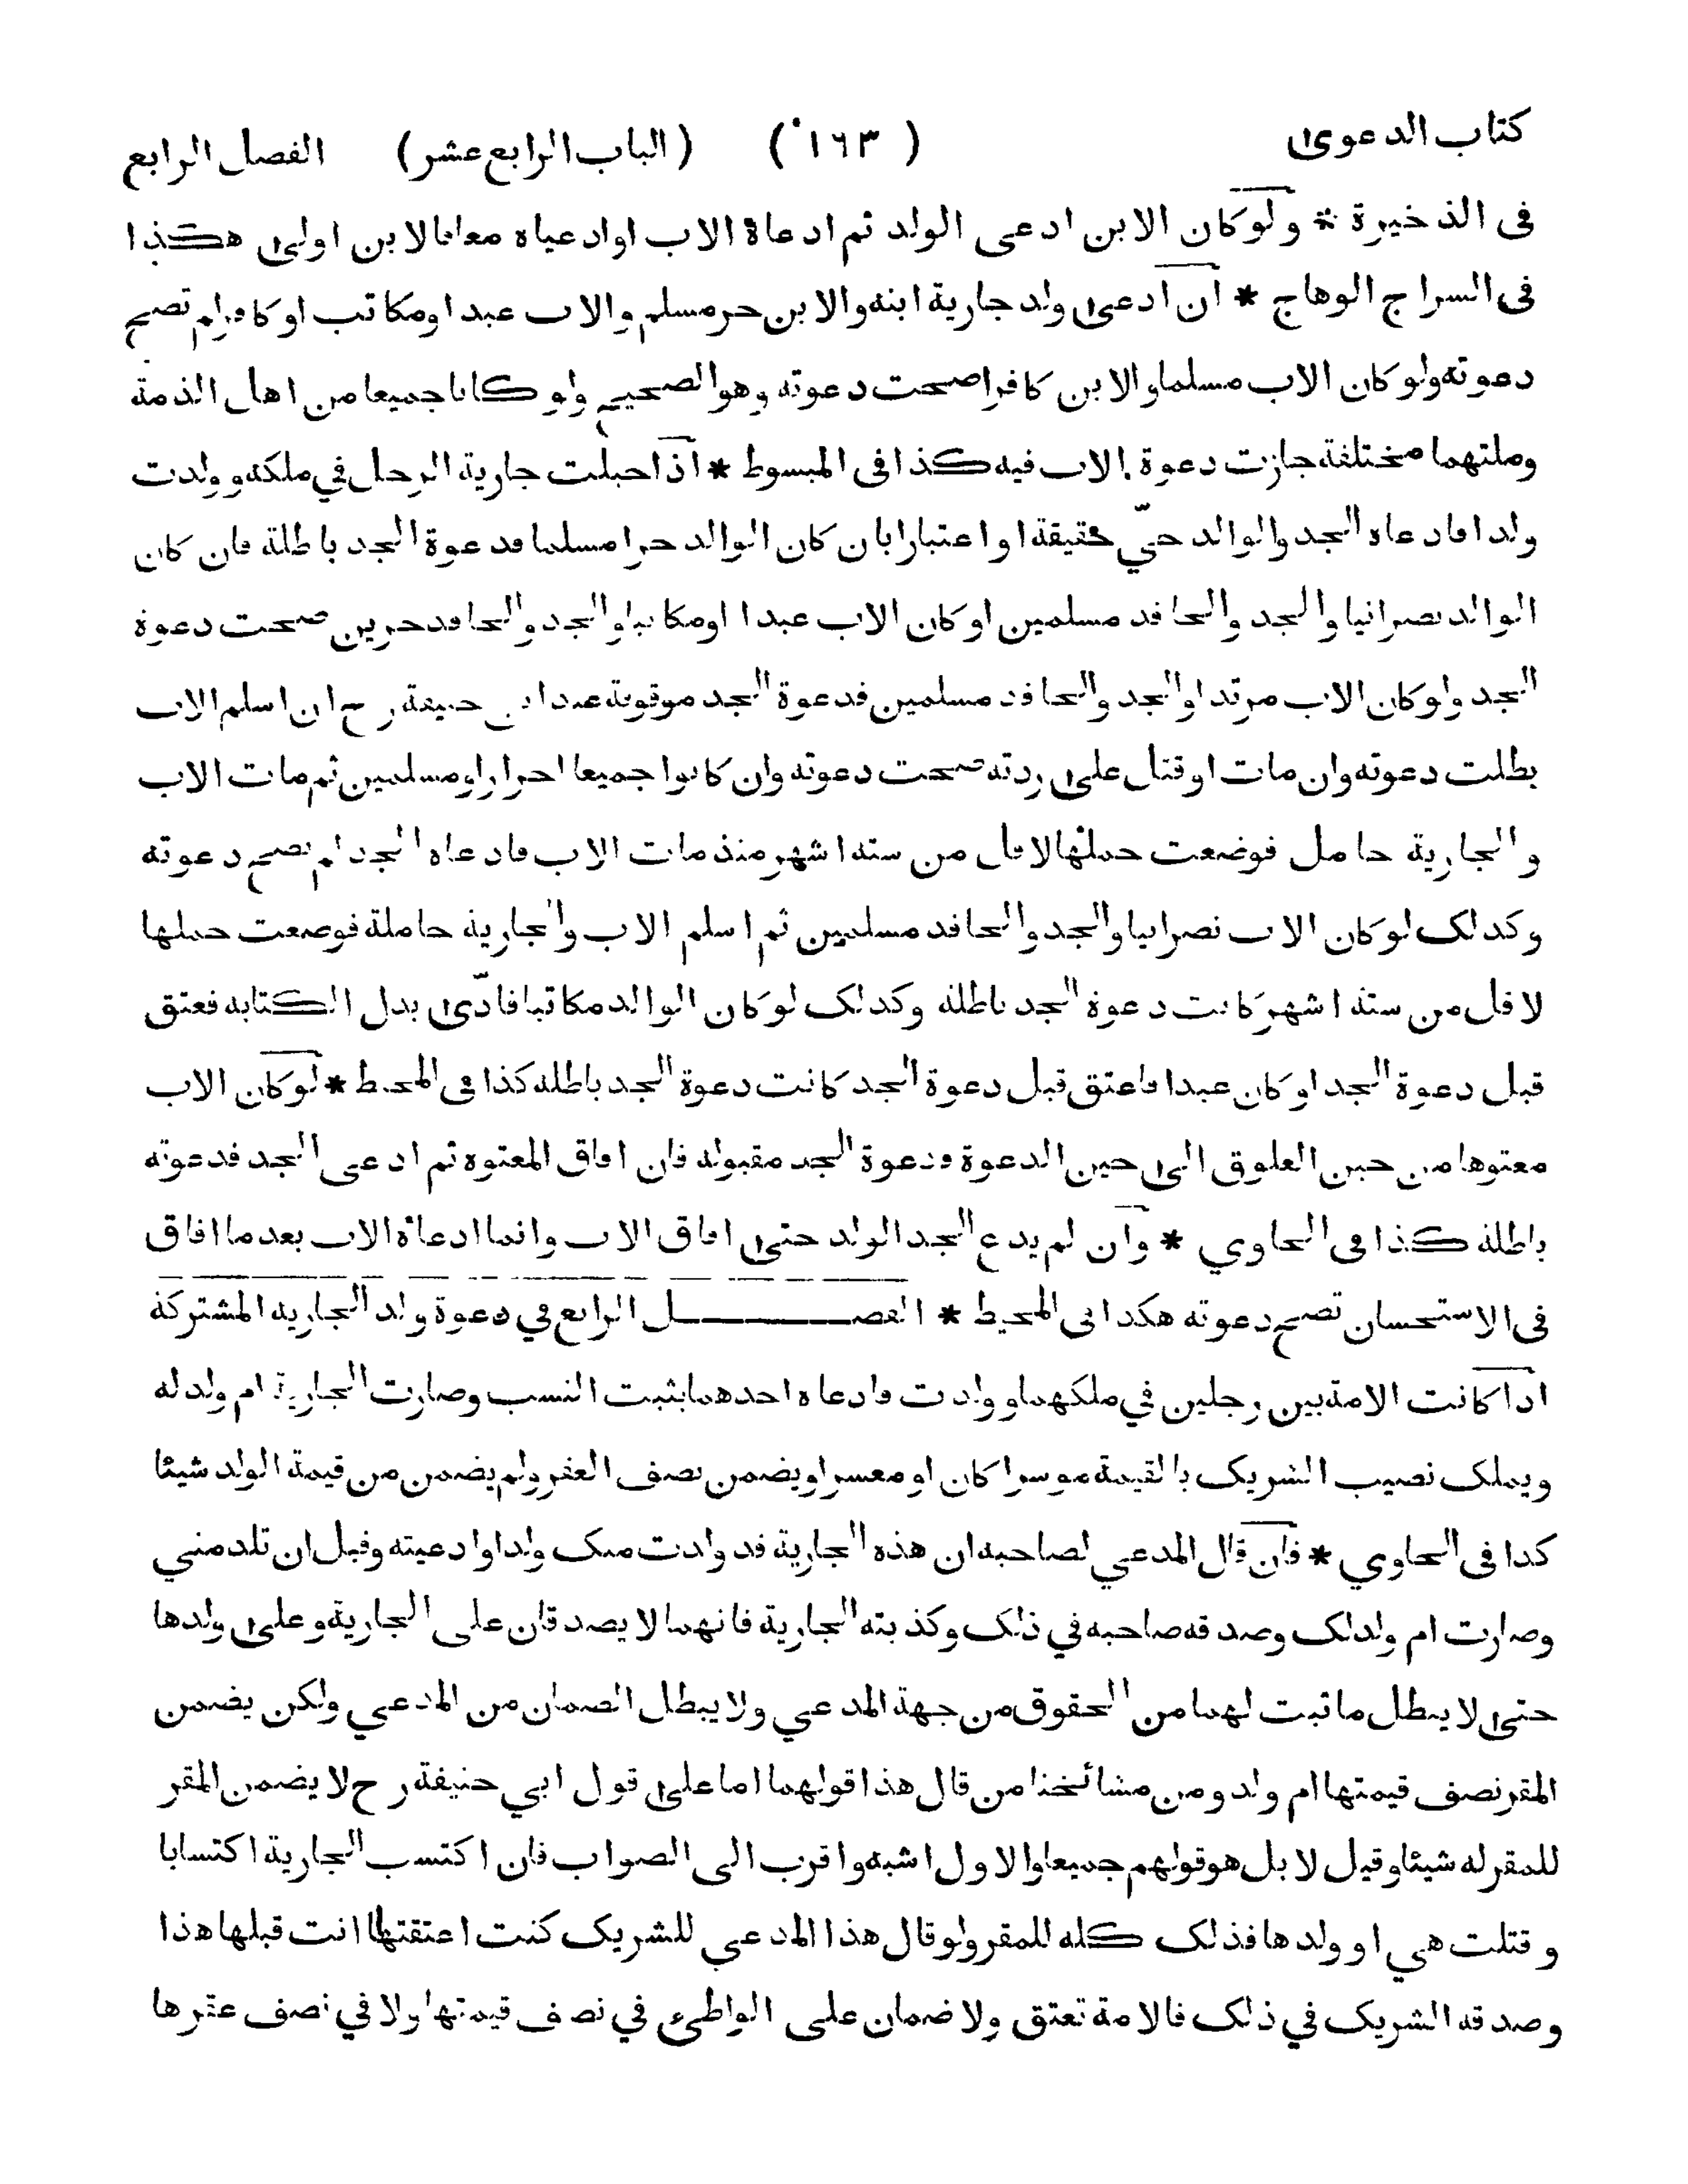 كتاب الدعوى ( ١٦٣ ) ( الباب الرابع عشر ) الفصل الرابع
فى الذخيرة * ولوكان الابن ادعى الولد ثم ادعاه الاب اوادعياه معافالابن اولى هكذا
فى السراج الوهاج * ان ادعى ولد جارية ابنه والابن حرمسلم والاب عبد اومكاتب اوكافرلم تصح
دعوته ولوكان الاب مسلماوالابن كافراصحت دعوته وهوالصحيح ولو كانا جميعا من اهل الذمة
وملتهما مختلفة جازت دعوة الاب فيه كذا فى المبسوط * اذا حبلت جارية الرجل في ملكه وولدت
ولدا فادعاه الجد والوالد حيّ حقيقة او اعتبارا بان كان الوالد حرا مسلما فدعوة الجد باطلة فان كان
الوالد نصرانيا والجد والحافد مسلمين اوكان الاب عبدا اومكاتبا والجد والحافد حرين صحت دعوة
الجد ولوكان الاب مرتدا والجد والحافد مسلمين فدعوة الجد موقوفة عند ابي حنيفة رح ان اسلم الاب
بطلت دعوته وان مات اوقتل على ردته صحت دعوته وان كانوا جميعا احرارا ومسلمين ثم مات الاب
والجارية حامل فوضعت حملها لاقل من ستة اشهر منذ مات الاب فادعاه الجد لم تصح دعوته
وكذلك لوكان الاب نصرانيا والجد والحافد مسلمين ثم اسلم الاب والجارية حاملة فوضعت حملها
لاقل من ستة اشهر كانت دعوة الجد باطلة وكذلك لوكان الوالد مكاتبا فادّى بدل الكتابة فعتق
قبل دعوة الجد اوكان عبدا فاعتق قبل دعوة الجد كانت دعوة الجد باطلة كذا فى المحيط * لوكان الاب
معتوها من حين العلوق الى حين الدعوة فدعوة الجد مقبولة فان افاق المعتوه ثم ادعى الجد فدعوته
باطلة كذا فى الحاوي * وان لم يدع الجد الولد حتى افاق الاب وانما ادعاه الاب بعد ما افاق
فى الاستحسان تصح دعوته هكذا فى المحيط * الفصـــــل الرابع في دعوة ولد الجارية المشتركة
اذا كانت الامة بين رجلين في ملكهما وولدت فادعاه احدهما يثبت النسب وصارت الجارية ام ولد له
ويملك نصيب الشريك بالقيمة موسرا كان او معسرا ويضمن نصف العقر ولم يضمن من قيمة الولد شيئا
كذا فى الحاوي * فان قال المدعي لصاحبه ان هذه الجارية قد ولدت منك ولدا وادعيته وقبل ان تلد مني
وصارت ام ولدلك وصدقه صاحبه في ذلك وكذبته الجارية فانهما لا يصدقان على الجارية وعلى ولدها
حتى لا يبطل ما ثبت لهما من الحقوق من جهة المدعي ولا يبطل الضمان من المدعي ولكن يضمن
المقر نصف قيمتها ام ولد ومن مشائخنا من قال هذا قولهما اما على قول ابي حنيفة رح لا يضمن المقر
للمقر له شيئا وقيل لا بل هو قولهم جميعا والاول اشبه واقرب الى الصواب فان اكتسب الجارية اكتسابا
وقتلت هي او ولدها فذلك كله للمقر ولو قال هذا المدعي للشريك كنت اعتقتها انت قبلها هذا
وصدقه الشريك في ذلك فالامة تعتق ولا ضمان على الواطئ في نصف قيمتها ولا في نصف عقرها